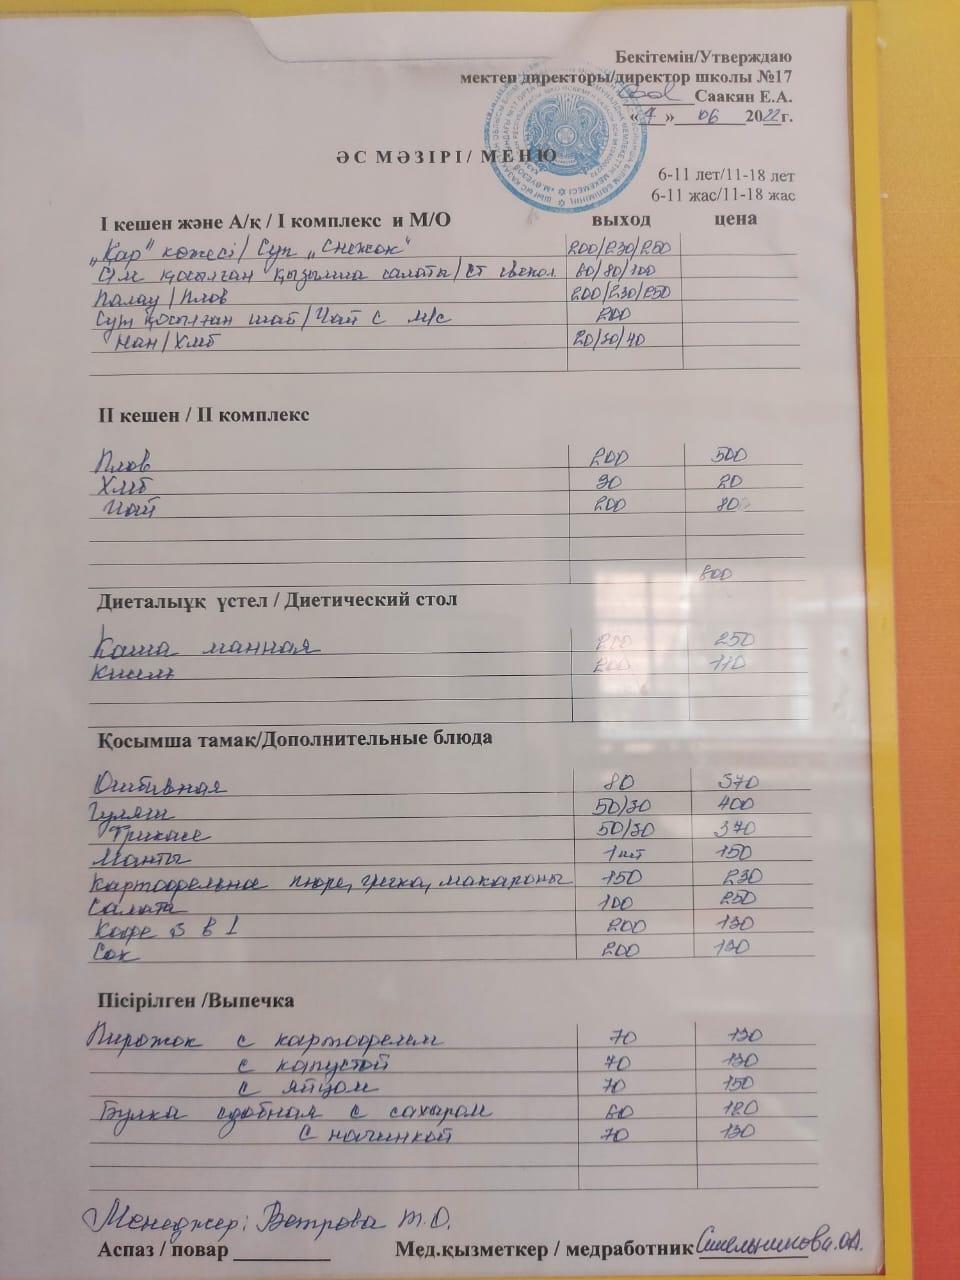 Бекітемін/Утверждаю
мектеп директоры/директор школы №17
Саакян Е.А.
«7» 06 2022г.
ӘС МӘЗІРІ/ МЕНЮ
6-11 лет/11-18 лет
6-11 жас/11-18 жас
I кешен және А/қ / I комплекс и М/О выход цена
„Қар" көжесі/ Суп „Снежок" 200/230/250
қосылған қызылша салаты/ 60/80/100
Палау/Плов 200/230/250
Сүт қосылған шай/Чай с м/с 200
Нан/Хлеб 20/30/40
II кешен / II комплекс
Плов 200 500
Хлеб 30 20
Чай 200 80
600
Диеталыұқ үстел / Диетический стол
Каша манная 200 250
Кисель 200 110
Қосымша тамақ/Дополнительные блюда
Отбивная 80 370
Гуляш 50/30 400
Фрикасе 50/30 370
Манты 1шт 150
Картофельное пюре, гречка, макароны 150 230
Салата 100 250
Кофе 3 в 1 200 130
Сок 200 130
Пісірілген /Выпечка
Пирожок с картофелем 70 130
с капустой 70 130
с яйцом 70 150
Булка сдобная с сахаром 60 120
с начинкой 70 130
Менеджер: Ветрова Т.О.
Аспаз / повар Мед.қызметкер / медработник Синельникова О.А.